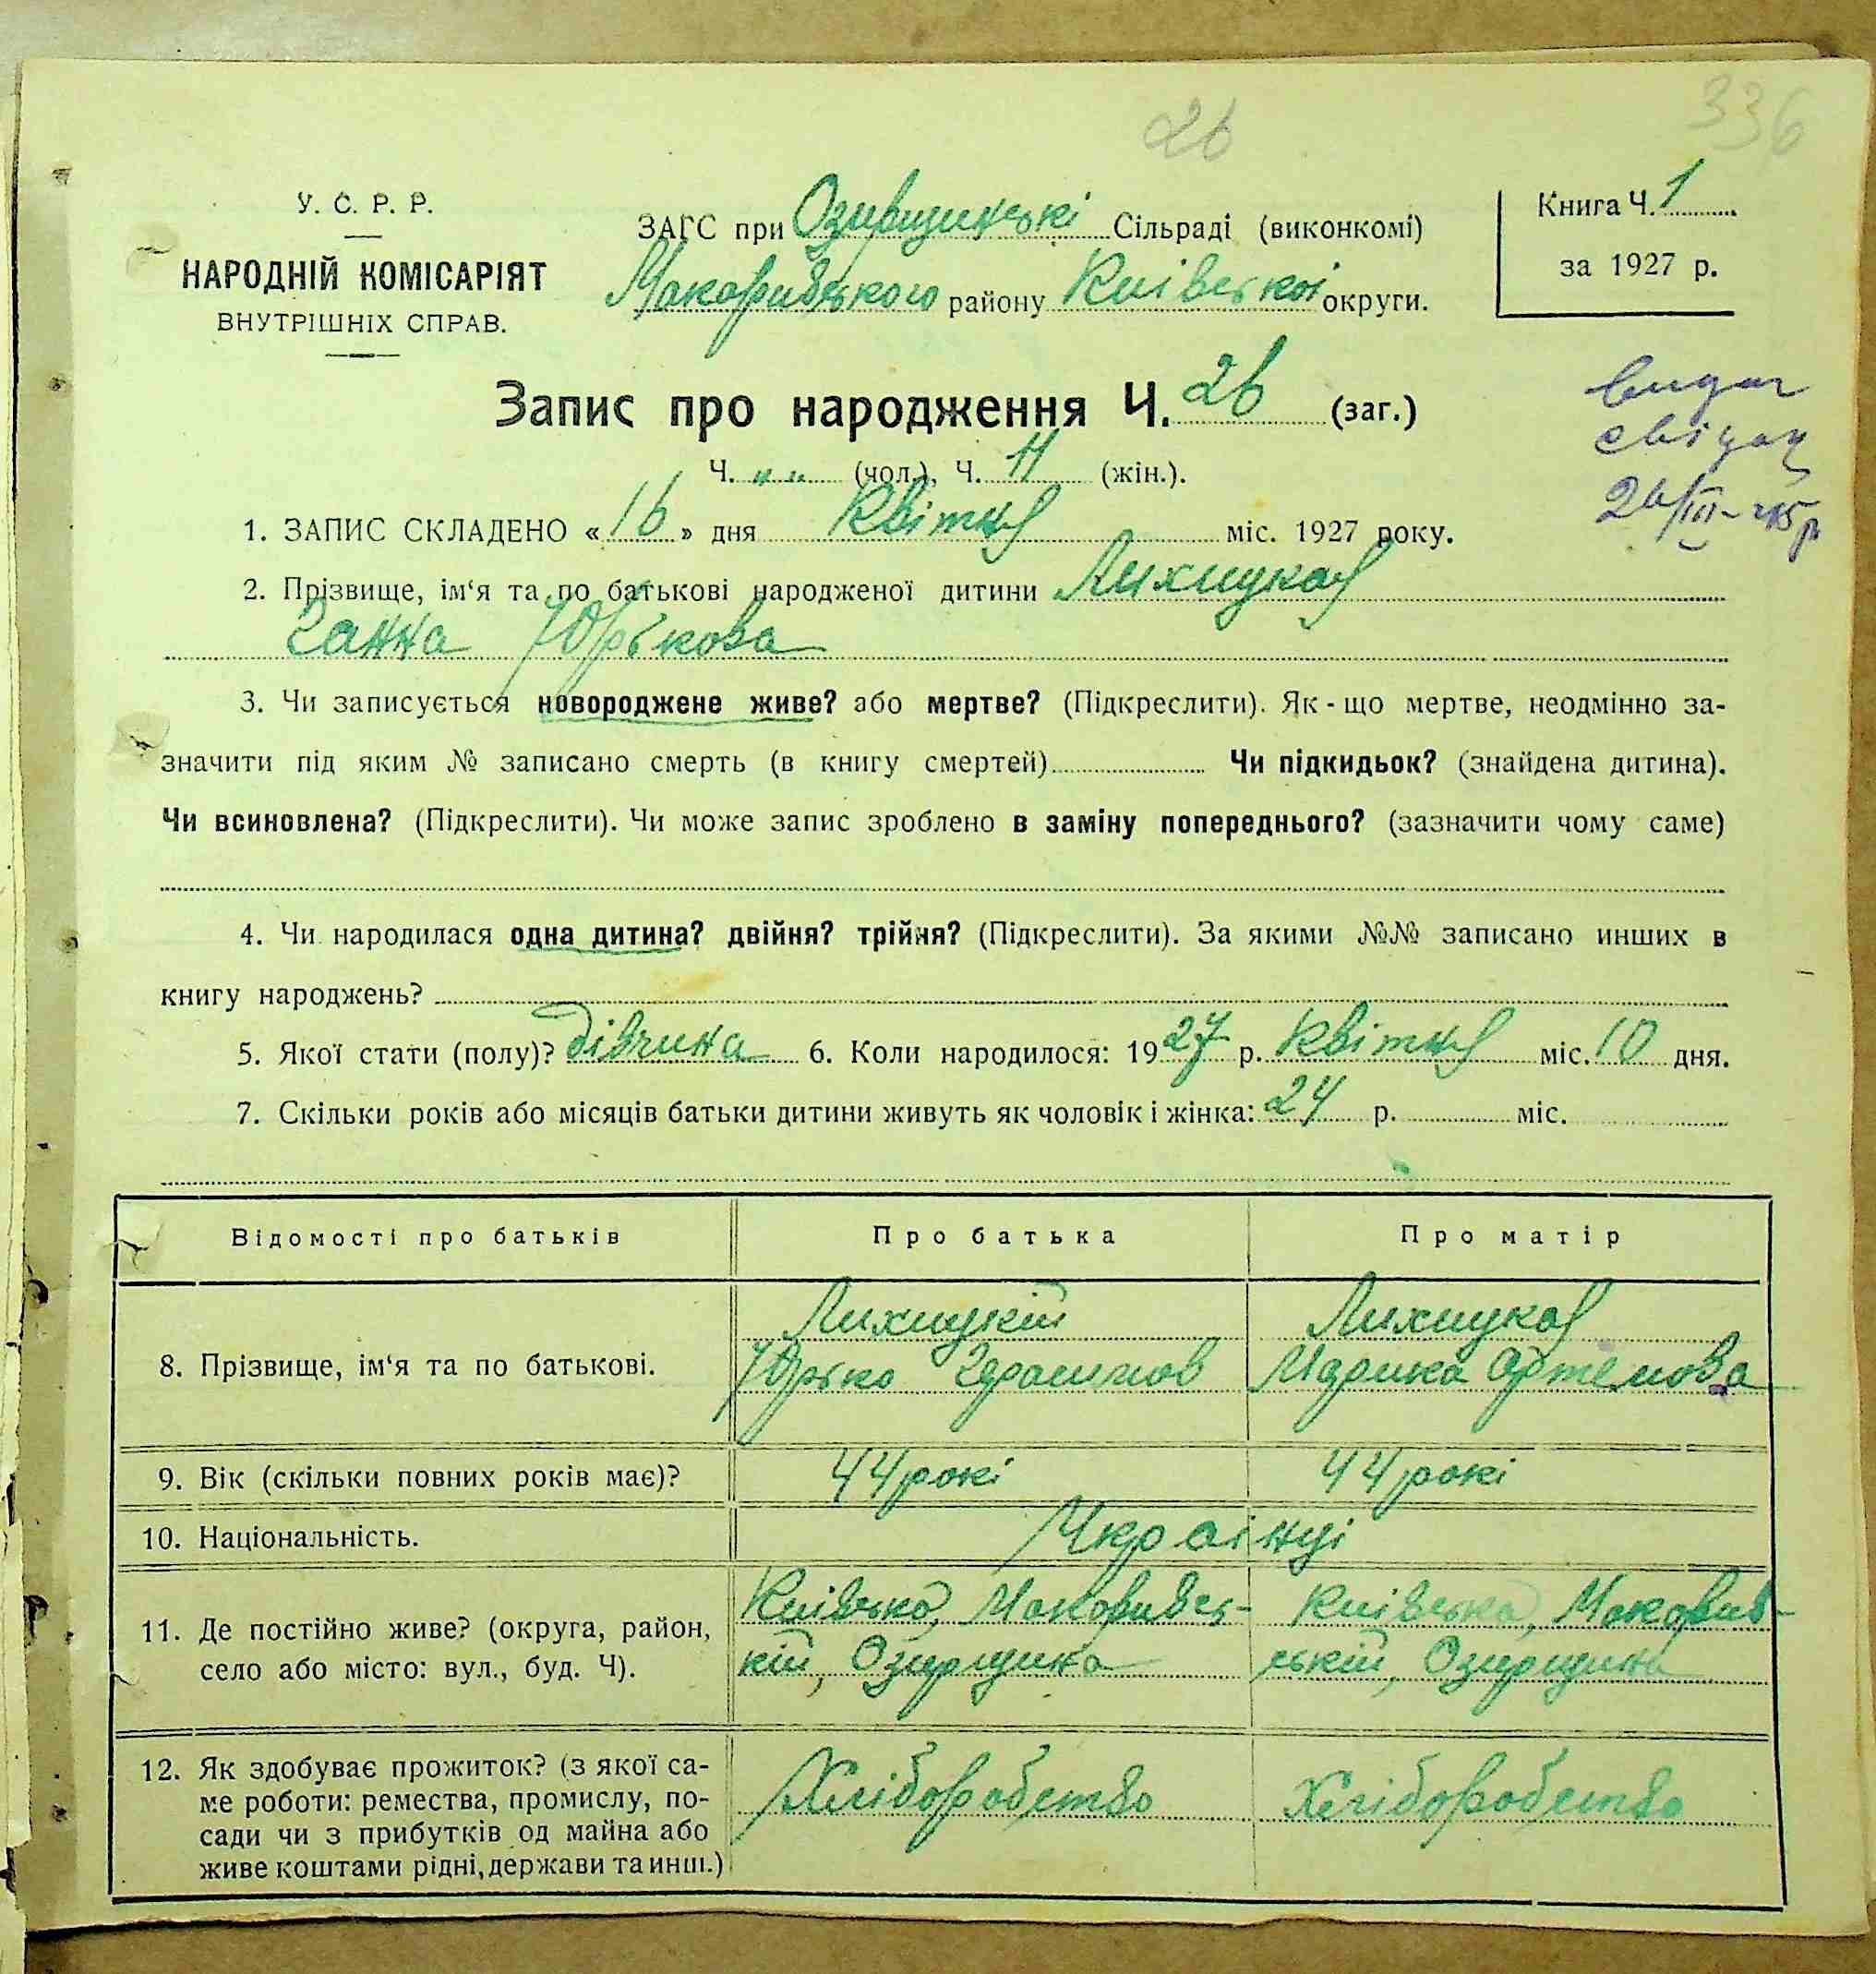 336
26
У. С. Р. Р.
НАРОДНІЙ КОМІСАРІЯТ
ВНУТРІШНІХ СПРАВ.
ЗАГС при Озирщинські Сільраді (виконкомі)
Макаривського району Київськоі округи.
Книга Ч. 1
за 1927 р.
Запис про народження Ч. 26 (заг.)
Ч. „ „ (чол.), Ч. 11 (жін.).
видач
свідоц
26/III-45р
1. ЗАПИС СКЛАДЕНО «16» дня Квітня міс. 1927 року.
2. Прізвище, ім‘я та по батькові народженої дитини Лихицкая
Ганна Юрькова
3. Чи записується новороджене живе? або мертве? (Підкреслити). Як - що мертве, неодмінно за-
значити під яким № записано смерть (в книгу смертей) Чи підкидьок? (знайдена дитина).
Чи всиновлена? (Підкреслити). Чи може запис зроблено в заміну попереднього? (зазначити чому саме)
4. Чи народилася одна дитина? двійня? трійня? (Підкреслити). За якими №№ записано инших в
книгу народжень?
5. Якої стати (полу)? дівчина 6. Коли народилося: 1927 р. Квітня міс. 10 дня.
7. Скільки років або місяців батьки дитини живуть як чоловік і жінка: 24 р. міс.
Відомості про батьків Про батька Про матір
8. Прізвище, ім‘я та по батькові.
Лихицкій
Юрько Гарасимов
Лихицкая
Марика Артемова
9. Вік (скільки повних років має)? 44 рокі 44 рокі
10. Національність. Украінці
11. Де постійно живе? (округа, район,
село або місто: вул., буд. Ч).
Киівська, Макоривсь-
кій, Озирщина
Киівська, Макорив-
ській, Озирщина
12. Як здобуває прожиток? (з якої са-
ме роботи: ремества, промислу, по-
сади чи з прибутків од майна або
живе коштами рідні, держави та инш.)
Хліборобство
Хліборобство